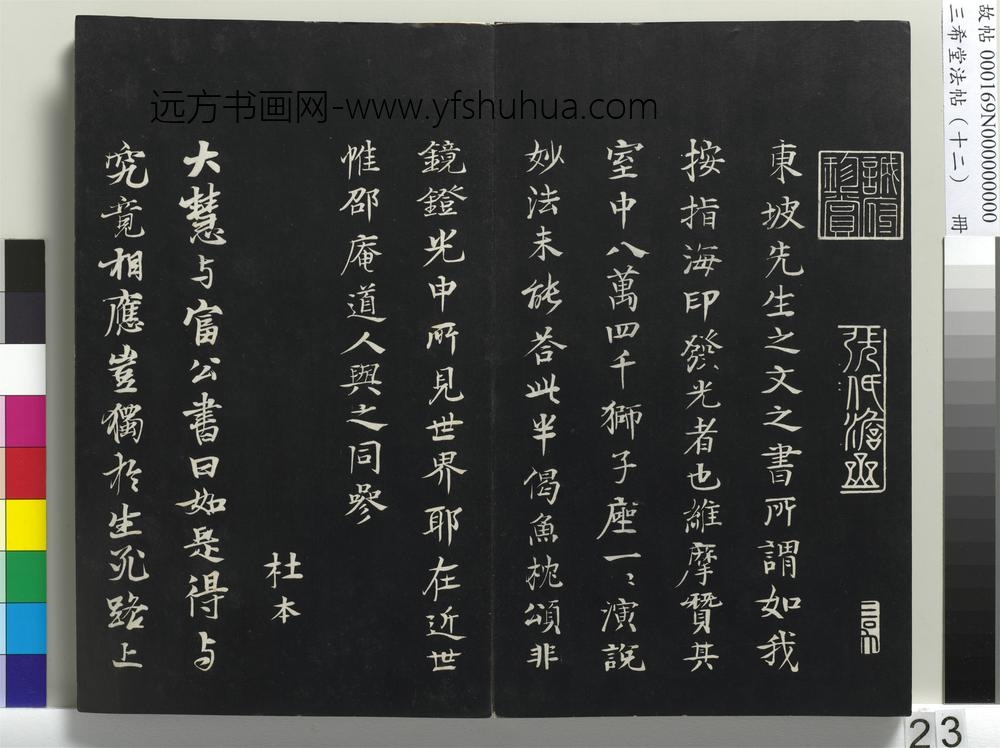 東坡先生之文之書所謂如我
按指海印發光者也維摩贊其
室中八萬四千獅子座一〻演說
妙法未能荅此半偈魚枕頌非
鏡鐙光中所見世界耶在近世
惟邵庵道人與之同參
杜本
大慧与富公書曰如是得与
究竟相應豈獨於生死路上
誠信珍賞
远方书画网-www.yfshuhua.com
故帖 000169N000000000
三希堂法帖（十二） 冊
23